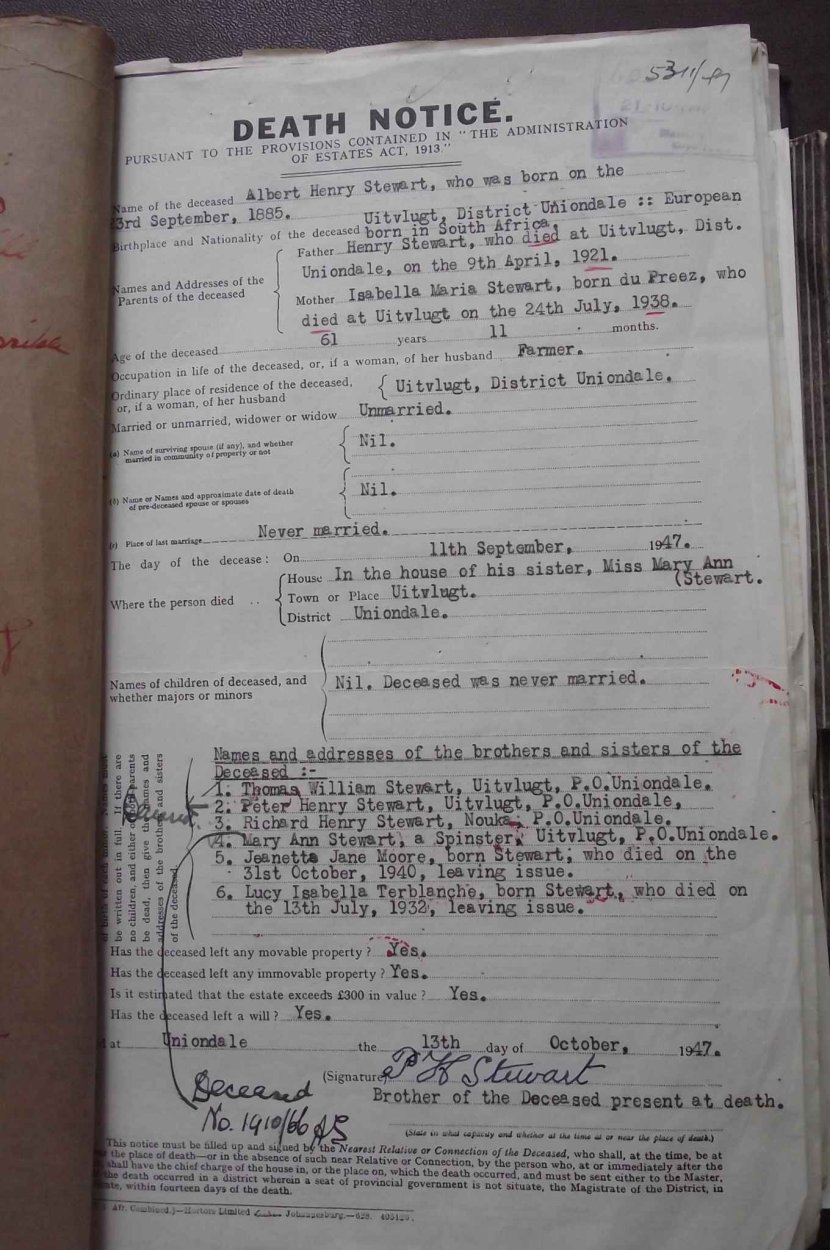 5311/47
DEATH NOTICE.
PURSUANT TO THE PROVISIONS CONTAINED IN "THE ADMINISTRATION
OF ESTATES ACT, 1913."
Name of the deceased Albert Henry Stewart, who was born on the
3rd September, 1885. Uitvlugt, District Uniondale :: European
Birthplace and Nationality of the deceased born in South Africa.
Names and Addresses of the Parents of the deceased
Father Henry Stewart, who died at Uitvlugt, Dist.
Uniondale, on the 9th April, 1921.
Mother Isabella Maria Stewart, born du Preez, who
died at Uitvlugt on the 24th July, 1938.
Age of the deceased 61 years 11 months.
Occupation in life of the deceased, or, if a woman, of her husband Farmer.
Ordinary place of residence of the deceased,
or, if a woman, of her husband Uitvlugt, District Uniondale.
Married or unmarried, widower or widow Unmarried.
(a) Name of surviving spouse (if any), and whether
married in community of property or not Nil.
(b) Name or Names and approximate date of death
of pre-deceased spouse or spouses Nil.
(c) Place of last marriage Never married.
The day of the decease: On 11th September, 1947.
House In the house of his sister, Miss Mary Ann
(Stewart.
Where the person died .. Town or Place Uitvlugt.
District Uniondale.
Names of children of deceased, and
whether majors or minors Nil. Deceased was never married.
be written out in full. If there are
no children, and either or both parents
be dead, then give the names and
addresses of the brothers and sisters
of the deceased.
Names and addresses of the brothers and sisters of the
Deceased :-
1. Thomas William Stewart, Uitvlugt, P.O.Uniondale.
2. Peter Henry Stewart, Uitvlugt, P.O.Uniondale,
3. Richard Henry Stewart, Nouka, P.O.Uniondale.
4. Mary Ann Stewart, a Spinster, Uitvlugt, P.O.Uniondale.
5. Jeanetta Jane Moore, born Stewart, who died on the
31st October, 1940, leaving issue.
6. Lucy Isabella Terblanche, born Stewart, who died on
the 13th July, 1932, leaving issue.
Has the deceased left any movable property? Yes.
Has the deceased left any immovable property? Yes.
Is it estimated that the estate exceeds £300 in value? Yes.
Has the deceased left a will? Yes.
at Uniondale the 13th day of October, 1947.
(Signature) P H Stewart
Brother of the Deceased present at death.
Deceased
No. 1910/66
(State in what capacity and whether at the time at or near the place of death.)
This notice must be filled up and signed by the Nearest Relative or Connection of the Deceased, who shall, at the time, be at
the place of death—or in the absence of such near Relative or Connection, by the person who, at or immediately after the
shall have the chief charge of the house in, or the place on, which the death occurred, and must be sent either to the Master,
the death occurred in a district wherein a seat of provincial government is not situate, the Magistrate of the District, in
within fourteen days of the death.
Afr. Combined.)—Hortors Limited Johannesburg.—628.